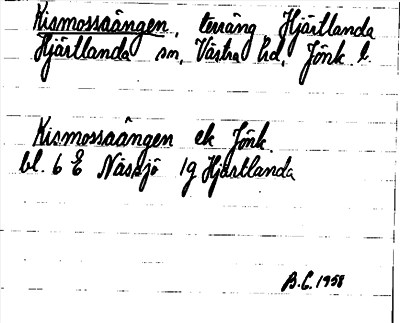 Kismossaängen, terräng Hjärtlanda
Hjärtlanda sn, Västra hd, Jönk. l.
Kismossaängen ek Jönk.
bl. 6 E Nässjö 1g Hjärtlanda
B.C. 1958